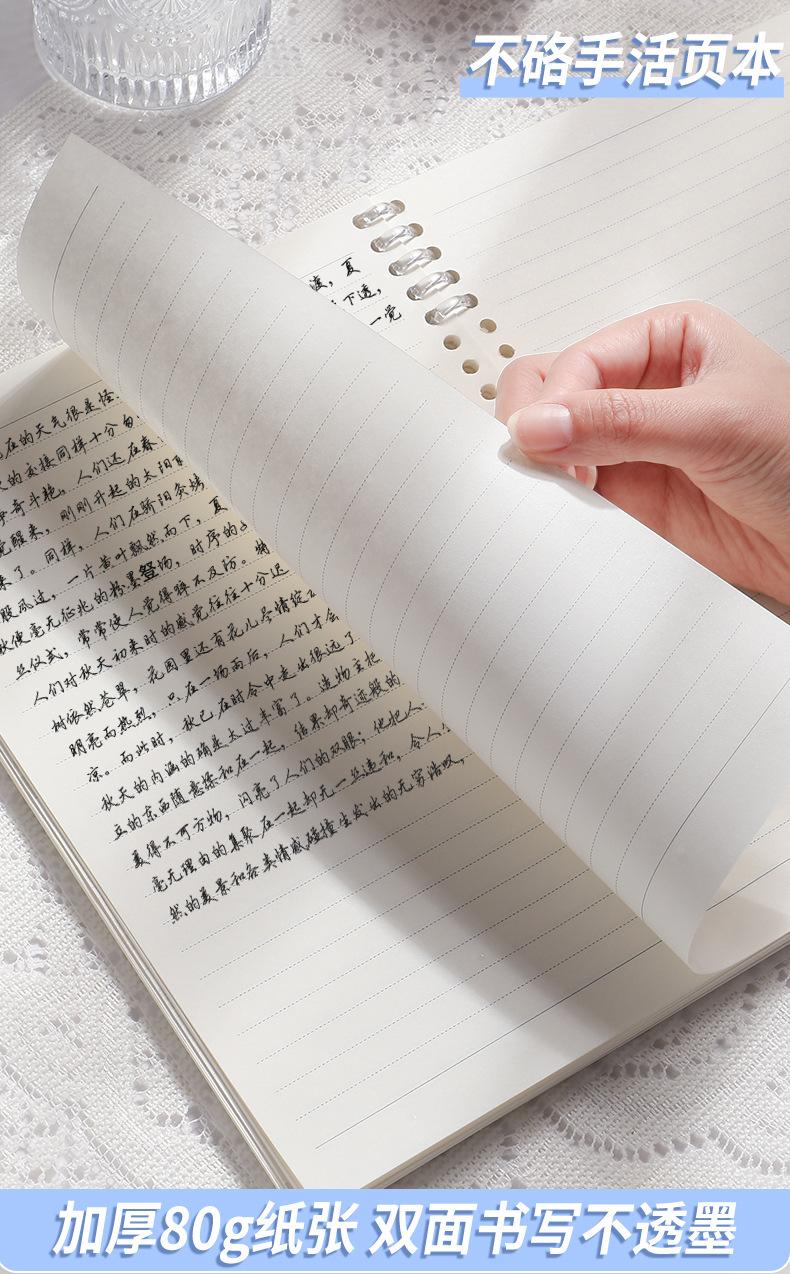 不硌手活页本
渡，夏
下透，
一觉
在的天气很是怪
的交接同样十分匆
争奇斗艳，人们还在春
觉醒来，刚刚升起的太阳
来了。同样，人们在骄阳炙烤
股风过，一片黄叶飘然而下，夏
秋便毫无征兆的粉墨登场，时序的
丝仪式，常常使人觉得猝不及防。
人们对秋天初来时的感觉往往十分迟
树依然苍翠，花园里还有花儿尽情绽
明亮而热烈，只在一场雨后，人们才会
凉。而此时，秋已在时令中走出很远了
秋天的内涵的确是太过丰富了。造物主把
立的东西随意揉和在一起，结果却奇迹般的
美得不可方物，闪亮了人们的双眼；他把人
毫无理由的集聚在一起却无一丝违和，令人
然的美景和各类情感碰撞生发出的无穷浩叹，
加厚80g纸张 双面书写不透墨